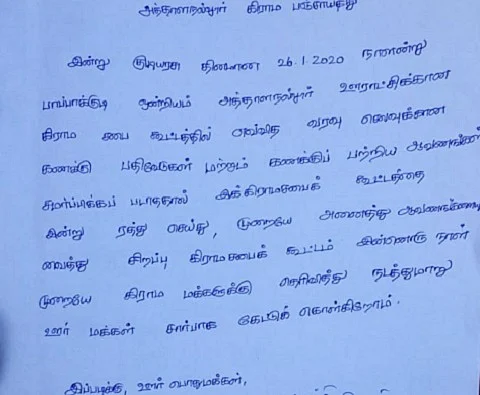 அந்தாளநல்லூர் கிராம பஞ்சாயத்து
இன்று குடியரசு தினமான 26.1.2020 நாளன்று
பாப்பாக்குடி ஒன்றியம் அந்தாளநல்லூர் ஊராட்சிக்கான
கிராம சபை கூட்டத்தில் எவ்வித வரவு செலவுக்கான
கணக்கு பதிவேடுகள் மற்றும் கணக்குப் பற்றிய ஆவணங்கள்
சமர்ப்பிக்கப் படாததால் இக்கிராமசபைக் கூட்டத்தை
இன்று ரத்து செய்து, முறையே அனைத்து ஆவணங்களையும்
வைத்து சிறப்பு கிராமசபைக் கூட்டம் இன்னொரு நாள்
முறையே கிராம மக்களுக்கு தெரிவித்து நடத்துமாறு
ஊர் மக்கள் சார்பாக கேட்டுக் கொள்கிறோம்.
இப்படிக்கு, ஊர் பொதுமக்கள்,